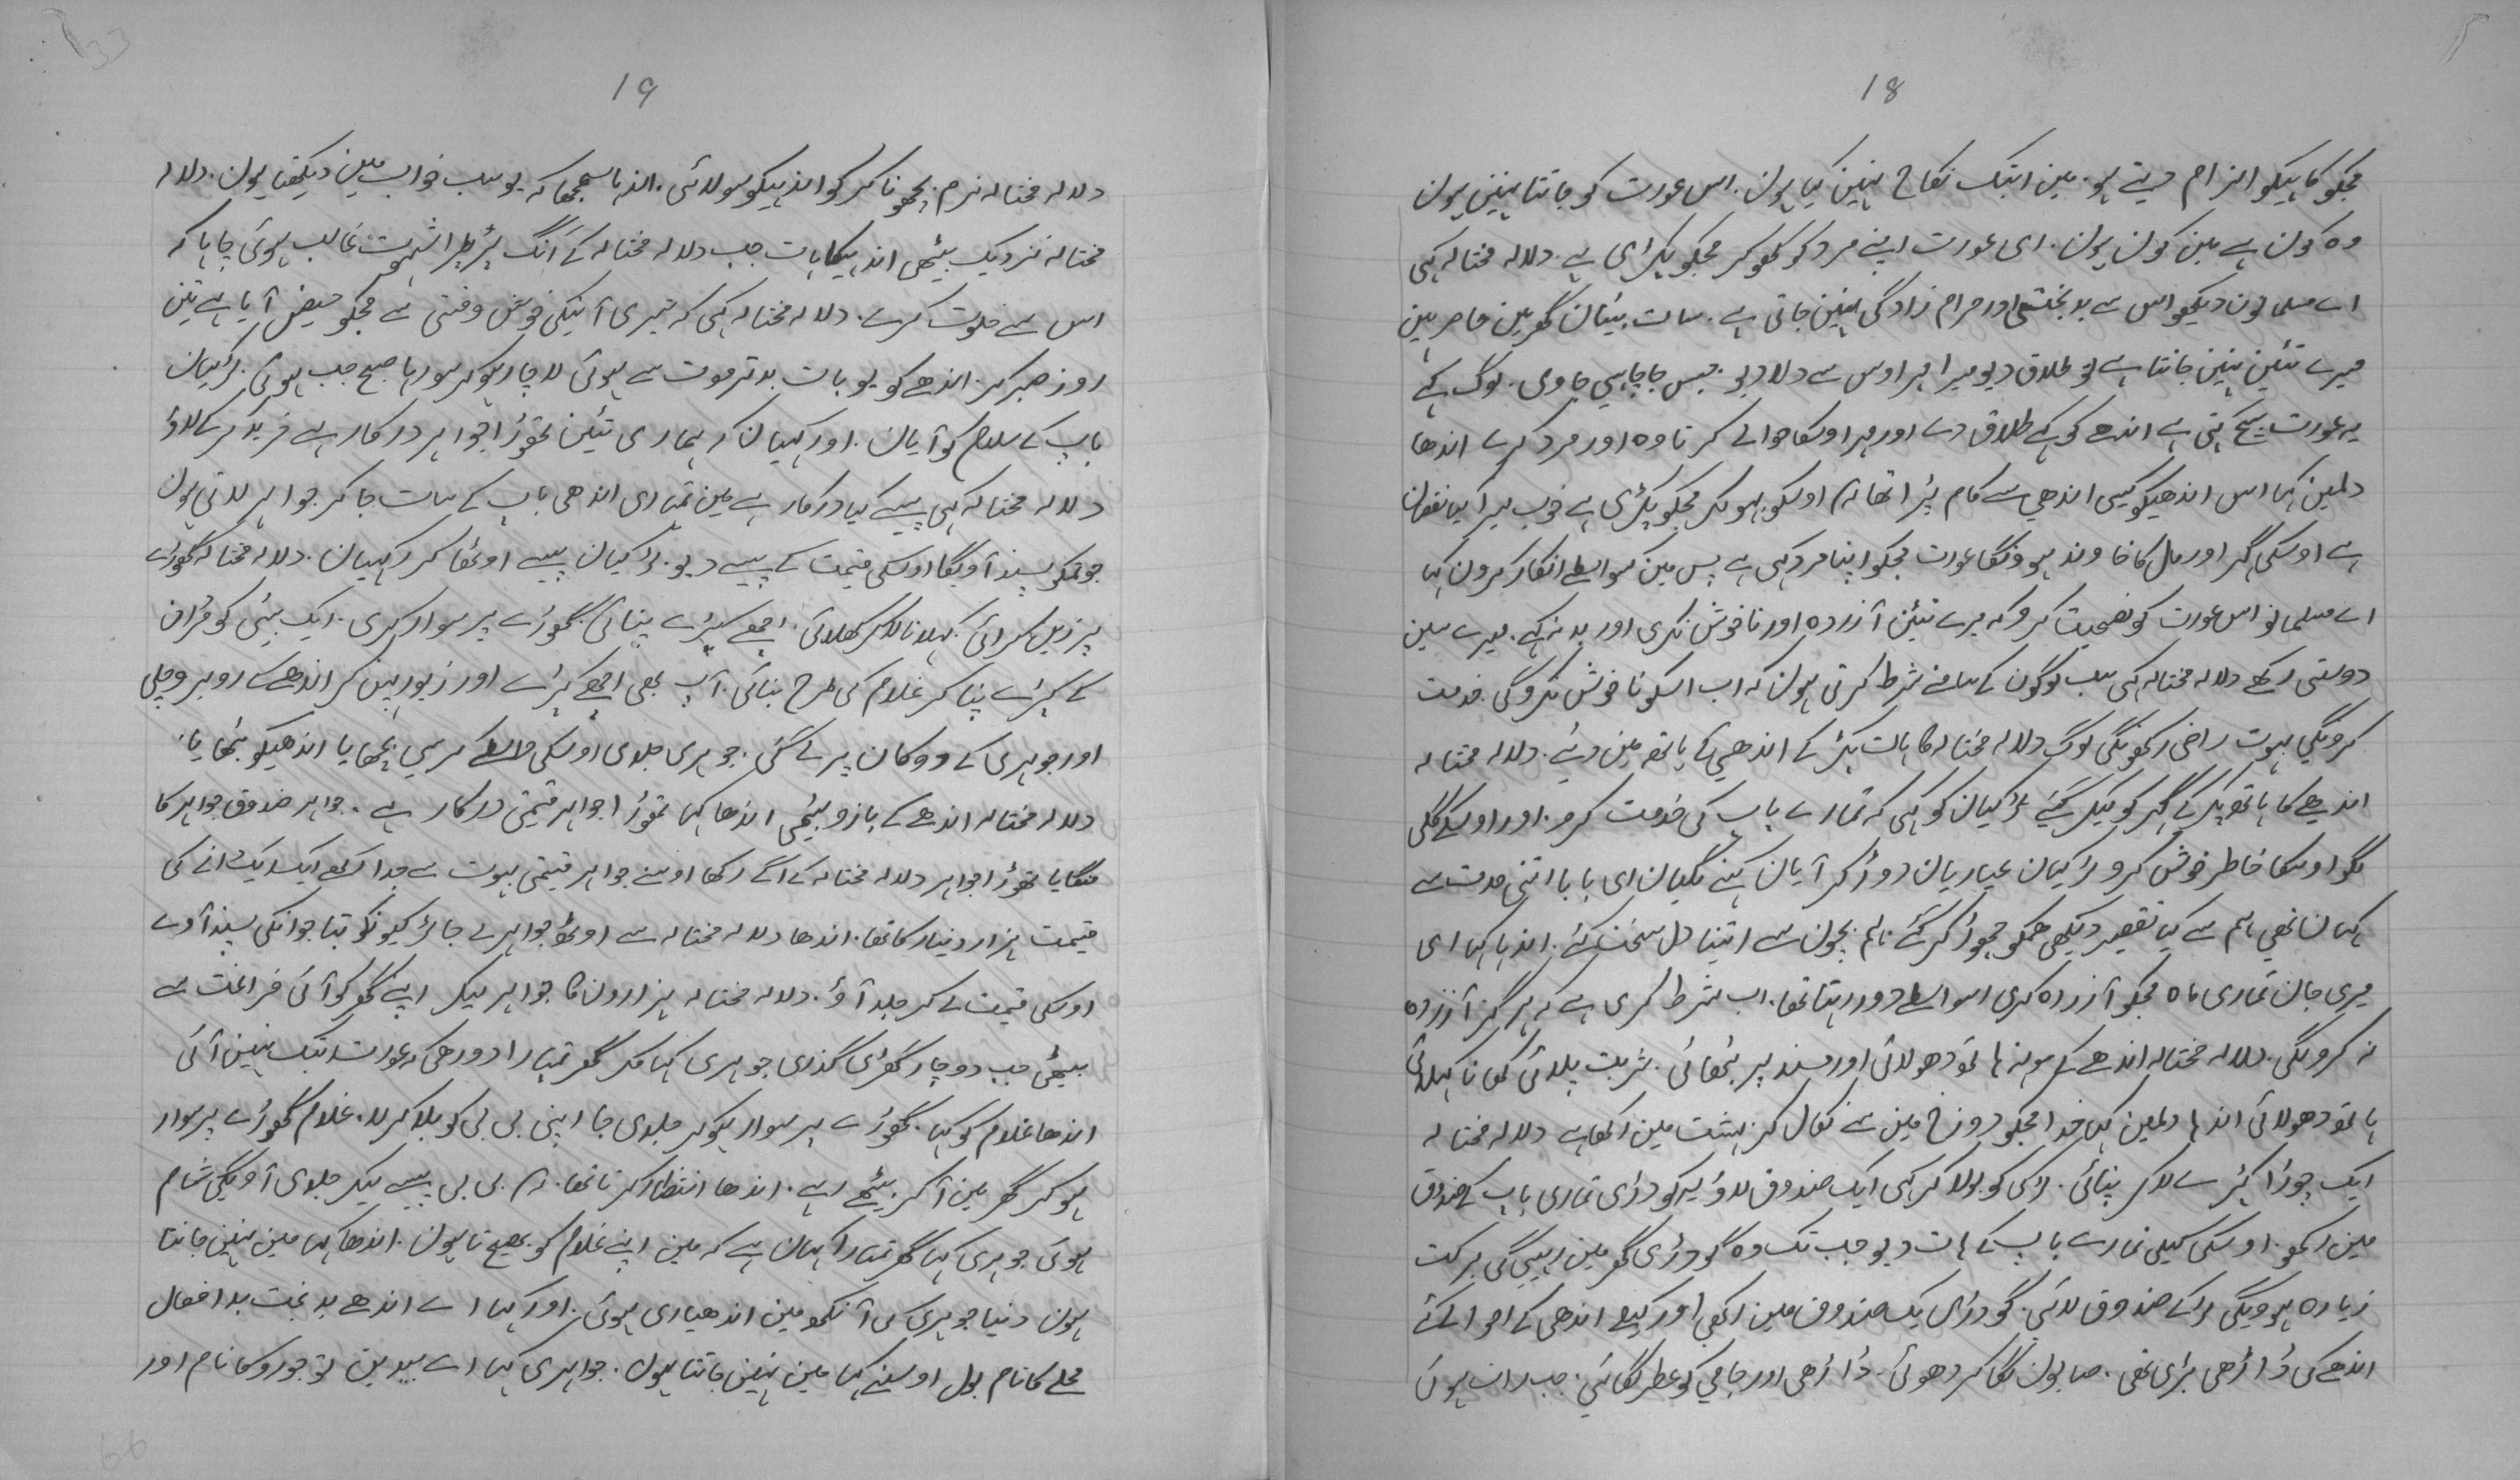 18
مجکو کاہیکو الزام دیتے ہو. مین ابتک نکاح نہین کیا ہون. اس عورت کو جانتا نہین ہون
وہ کون ہے مین کون ہون. ای عورت اپنے مرد کو کھو کر مجکو پکڑی ہے. دلالہ مختالہ کہی
اے مسلمانون دیکھو اس سے بدبختی اور حرام زادگی نہین جاتی ہے. سات بیٹیان گھر مین حاضر ہین
میرے تئین نہین جانتا ہے تو طلاق دیو میرا مہر اوس سے دلا دیو. جس جا چاہے جاوی. لوگ کہے
یہ عورت سچ کہتی ہے اندھے کو کہے طلاق دے اور مہر اوسکا حوالے کر تا وہ اور مرد کرے اندھا
دلمین کہا اس اندھیکو کیسی اندھی سے کام پڑا تھا کہ اوسکو بہوککر مجکو پکڑی ہے خوب میرا کیا نقصان
ہے اوسکی گھر اور مال کا خاوند ہوونگا عورت مجکو اپنا مرد کہی ہے پس مین کسواسطے انکار کرون کہا
اے مسلمانو اس عورت کو نصیحت کرو کہ میرے تئین آزردہ اور ناخوش نکری اور بد نہ کہے. میرے سین
دوستی رکھے دلالہ مختالہ کہی سب لوگون کے سامنے شرط کرتی ہون کہ اب اسکو ناخوش نکرونگی. خدمت
کرونگی بہوت راضی رکھونگی لوگ دلالہ مختالہ کا ہات پکڑ کے اندھی کے ہاتھ مین دیئے. دلالہ مختالہ
اندھے کا ہاتھ پکڑ کے گھر کو لیکر گئی لڑکیان کو کہی کہ تمارے باپ کی خدمت کرو. اور اوسکے گلے
لگو اوسکا خاطر خوش کرو لڑکیان عیاریان دوڑ کر آیان کہنے لگیان ای بابا اتنی مدت سے
کہان تھی ہم سے کیا تقصیر دیکھی ہمکو چھوڑ کر گئے. ہم بچون سے اتینا دل سخت کئے. اندھا کہا ای
میری جان تماری ماہ مجکو آزردہ کری اسواسطے دور رہتا تھا. اب شرط کری ہے کہ ہرگز آزردہ
نہ کرونگی. دلالہ مختالہ اندھے کے مونہ ہاتھ دھولائی اور مسند پر بٹھائی. شربت پلائی کھانا کھلائی
ہاتھ دھولائی اندھا دلمین کہا خدا مجکو دوزخ مین سے نکال کر بہشت مین رکھا ہے دلالہ مختالہ
ایک جوڑا کپڑے لاکر پنائی. لڑکی کو بولا کر کہی ایک صندوق لاؤ یہ گودڑی تماری باپ کے صندوق
مین رکھو. اوسکی کیلی تمارے باپ کے ہات دیو جب تک وہ گودڑی گھر مین رہیگی برکت
زیادہ ہوویگی لڑکے صندوق لائی. گودڑی یک صندوق مین رکھی اور کیلے اندھی کے حوالے کئے
اندھے کی ڈاڑھی بڑی تھی. صابون لگا کر دھوئی. ڈاڑھی اور جامے کو عطر لگائی. جب رات ہوئی
19
دلالہ مختالہ نرم بچھونا کر کو اندھیکو سولائی. اندھا سمجھا کہ یو سب خواب مین دیکھتا ہون. دلالہ
مختالہ نزدیک بیٹھی اندھیکا ہات جب دلالہ مختالہ کے انگ پر پڑا شہوت غالب ہوئی چاہا کہ
اس سے خلوت کرے. دلالہ مختالہ کہی کہ تیری آنیکی خوش وقتی سے مجکو حیض آیا ہے تین
روز صبر کر. اندھے کو یو بات بدتر موت سے ہوئی لاچار ہوکر سو رہا صبح جب ہوئی. لڑکیان
باپ کے سلام کو آیان. اور کہیان کہ ہماری تئین تھوڑا جواہر درکار ہے خرید کر کے لاؤ
دلالہ مختالہ کہی پیسے کیا درکار ہے مین تماری اندھی باپ کے سات جا کر جواہر لاتی ہون
جو تمکو پسند آویگا اوسکی قیمت کے پیسے دیو. لڑکیان پیسے اوٹھا کر رکہیان. دلالہ مختالہ گھوڑے
پر زین کرائی. کھانا لاکر کھلائی. اچھے کپڑے پنائی گھوڑے پر سوار کری. ایک بیٹی کو مردان
کے کپڑے پنا کر غلام کی طرح بنائی. آپ بھی اچھے کپڑے اور زیور پہن کر اندھے کے روبرو چلی
اور جوہری کے دوکان پر لے گئی. جوہری جلدی اوسکی واسطے کرسی بچھایا اندھیکو بٹھایا.
دلالہ مختالہ اندھے کے بازو بیٹھی اندھا کہا تھوڑا جواہر قیمتی درکار ہے. جواہر صندوق جواہر کا
منگایا تھوڑا جواہر دلالہ مختالہ کے آگے رکھا اوسنے جواہر قیمتی بہوت سے جدا کئے ایک ایک دانے کی
قیمت ہزار دینار کا تھا. اندھا دلالہ مختالہ سے اوٹھ جواہر لے جا لڑکیونکو بتا جو انکی پسند آوے
اوسکی قیمت لے کر جلد آؤ. دلالہ مختالہ ہزارون کا جواہر لیکر اپنے گھر کو آئی فراغت سے
بیٹھی جب دو چار گھڑی گذری جوہری کہا مگر گھر تمہارا دور ھیکہ عورت ابتک نہین آئی
اندھا غلام کو کہا. گھوڑے پر سوار ہوکر جلدی جا اپنی بی بی کو بلا کر لا. غلام گھوڑے پر سوار
ہو کر گھر مین آکر بیٹھے رہے. اندھا انتظار کرتا تھا. کہ بی بی پیسے لیکر جلدی آویگی شام
ہوئی جوہری کہا گھر تمہارا کہان ہے کہ مین اپنے غلام کو بھیجتا ہون. اندھا کہا مین نہین جانتا
ہون دنیا جوہری کی آنکھو مین اندھیاری ہوئی. اور کہا اے اندھے بدبخت بد افعال
محلے کا نام بول اوسنے کہا مین نہین جانتا ہون. جواہری کہا اے بیدین تو جورو کا نام اور
66